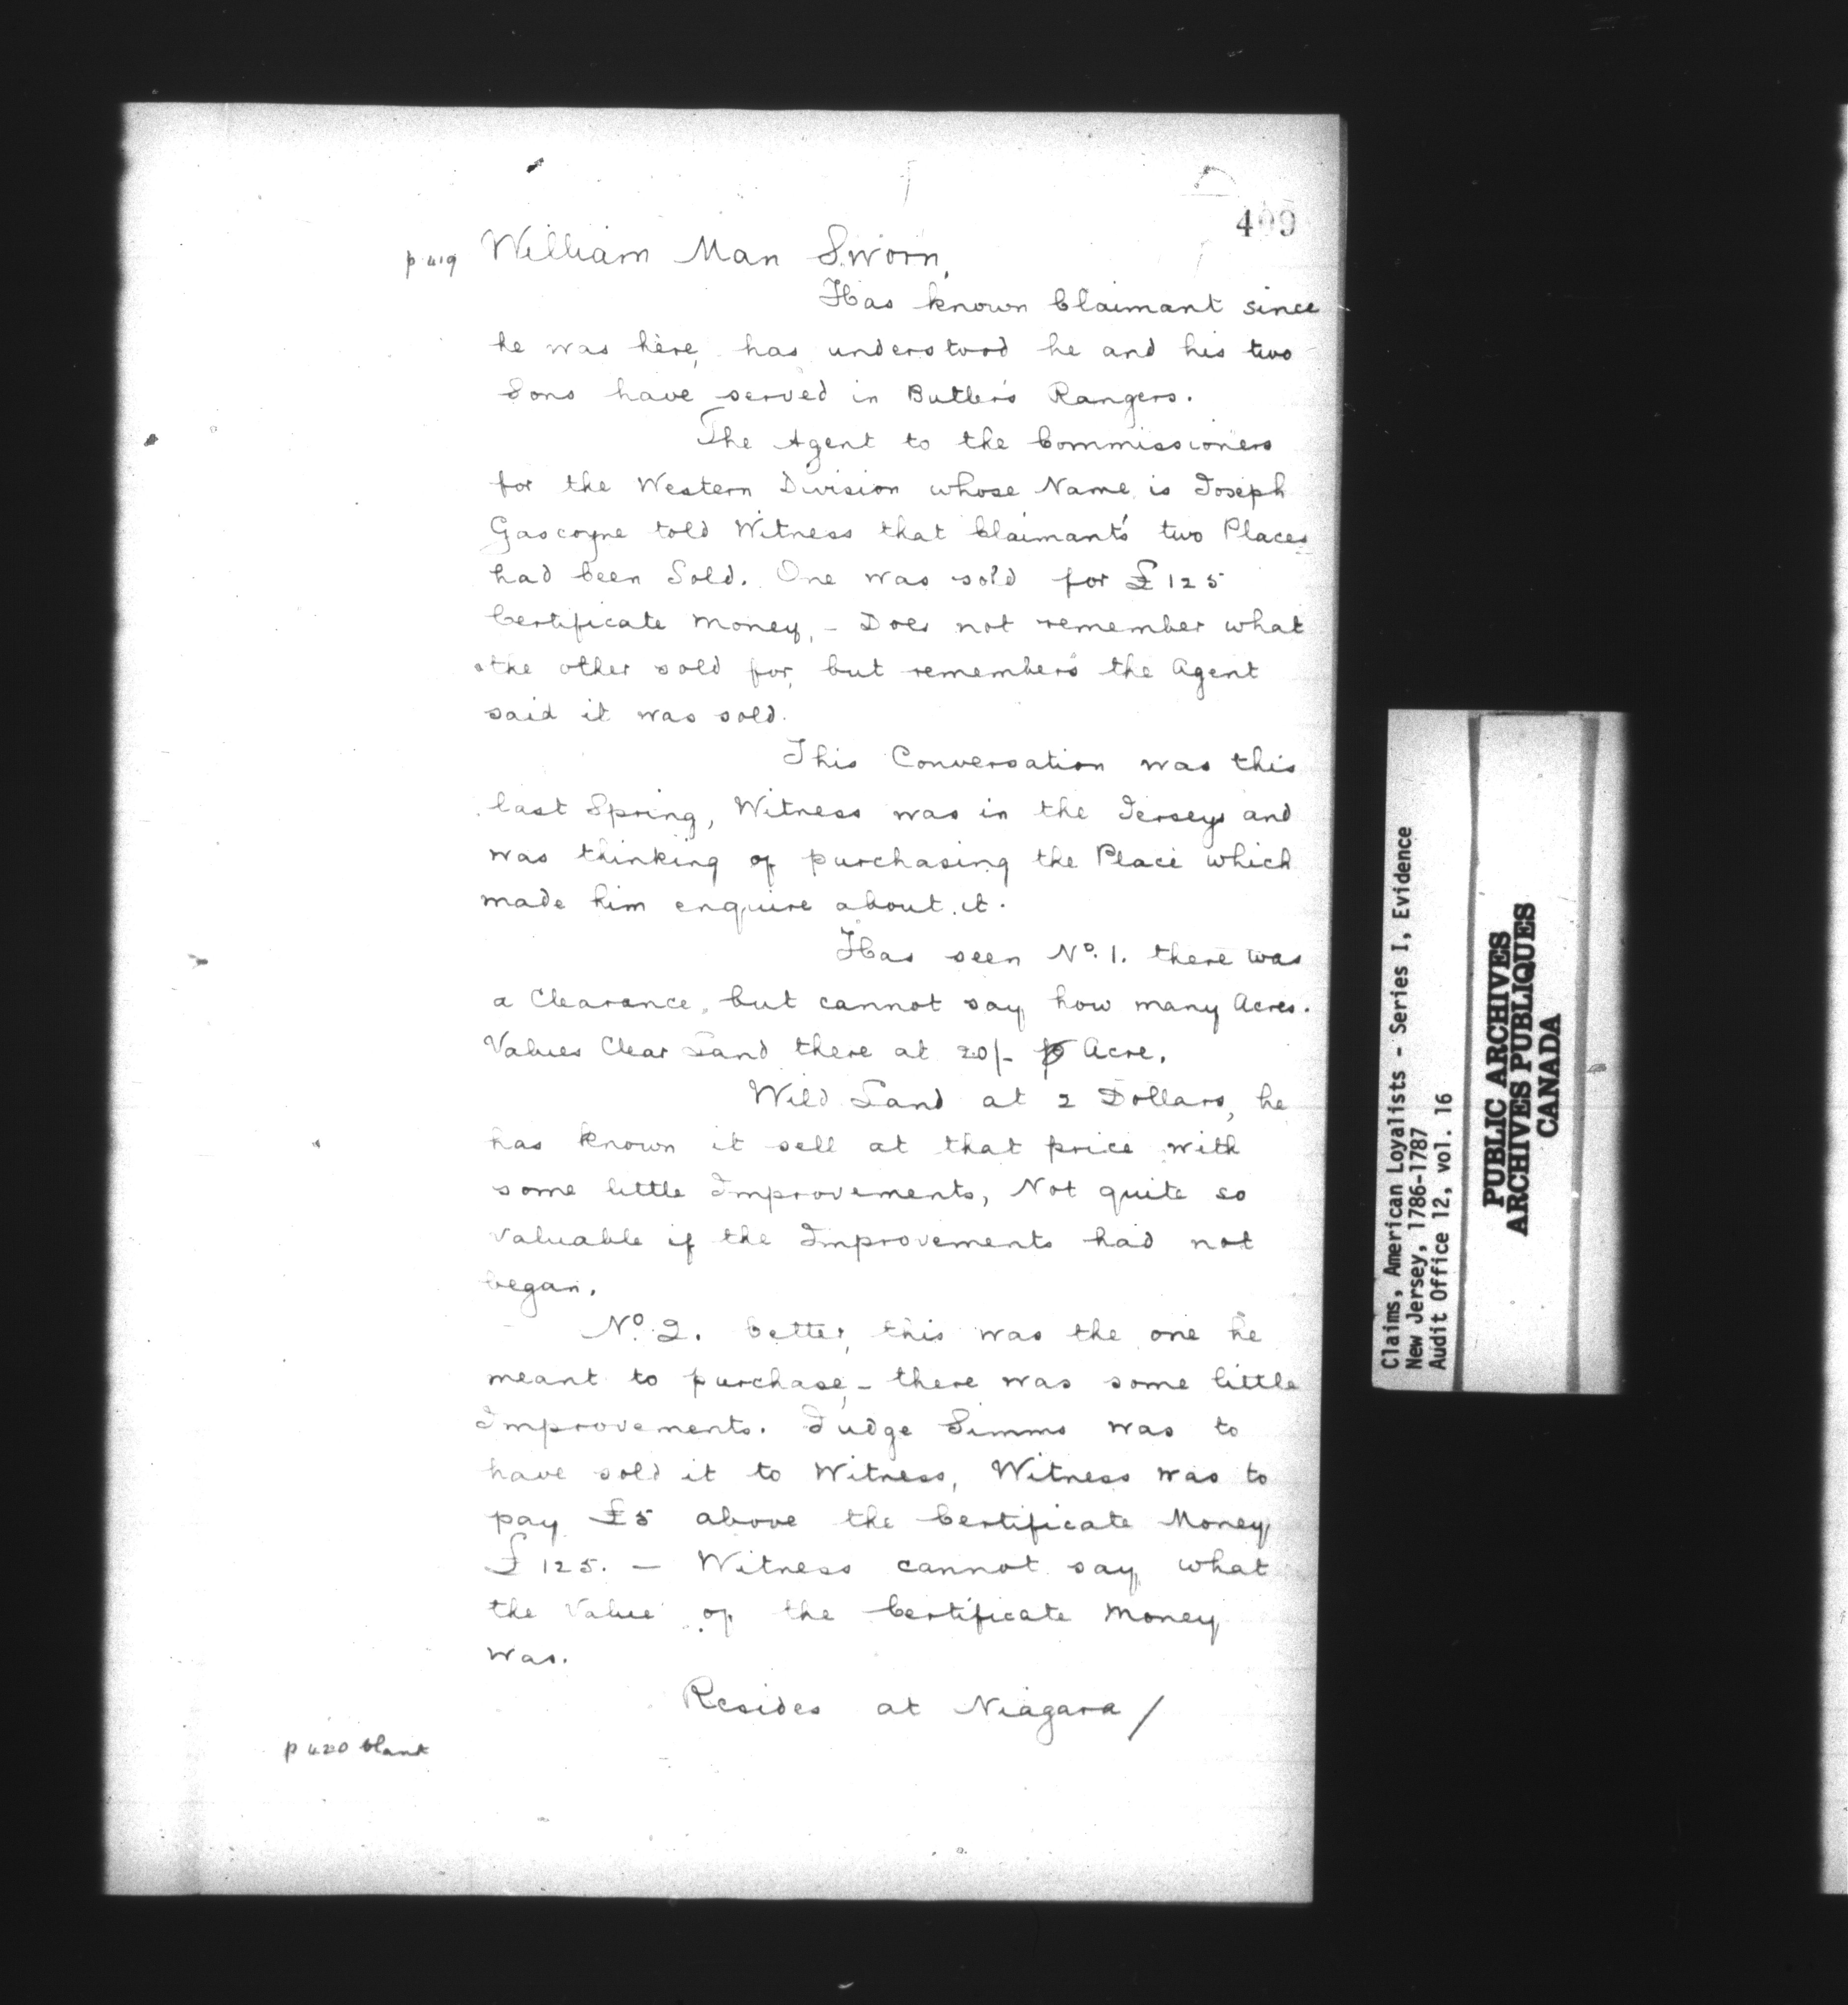 409
p 419 William Man Sworn,
Has known Claimant since
he was here, has understood he and his two
Sons have served in Butler's Rangers.
The Agent to the Commissioners
for the Western Division whose Name is Joseph
Gascoyne told Witness that Claimant's two Places
had been Sold. One was sold for £125
Certificate Money, - Does not remember what
the other sold for, but remembers the Agent
said it was sold.
This Conversation was this
last Spring, Witness was in the Jerseys and
was thinking of purchasing the Place which
made him enquire about it.
Has seen No. 1. there was
a Clearance, but cannot say how many Acres.
Values Clear Land there at 20/- ⅌ Acre.
Wild Land at 2 Dollars, he
has known it sell at that price with
some little Improvements, Not quite so
valuable if the Improvements had not
began.
No. 2. better, this was the one he
meant to purchase, - there was some little
Improvements. Judge Simms was to
have sold it to Witness, Witness was to
pay £5 above the Certificate Money
£125. — Witness cannot say what
the Value of the Certificate Money
was.
Resides at Niagara /
p 420 blank
Claims, American Loyalists - Series I, Evidence
New Jersey, 1786-1787
Audit Office 12, vol. 16
PUBLIC ARCHIVES
ARCHIVES PUBLIQUES
CANADA